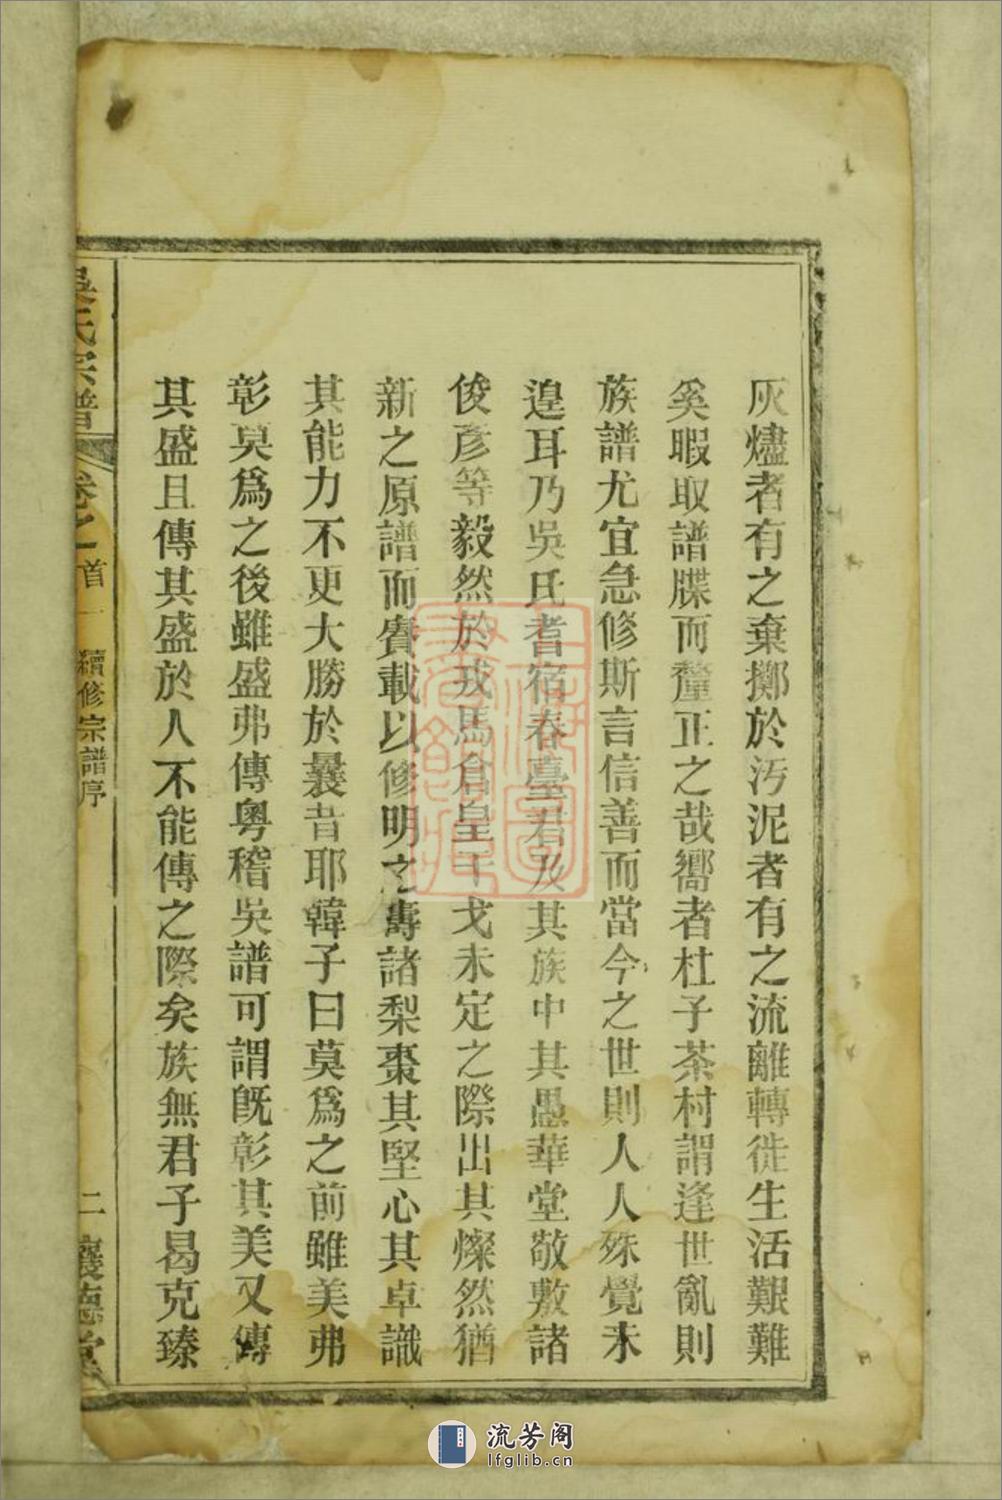 灰燼者有之棄擲於污泥者有之流離轉徙生活艱難
奚暇取譜牒而釐正之哉嚮者杜子茶村謂逢世亂則
族譜尤宜急修斯言信善而當今之世則人人殊覺未
遑耳乃吳氏耆宿春臺君及其族中其愚華堂敬敷諸
俊彥等毅然於戎馬倉皇干戈未定之際出其燦然猶
新之原譜而賡載以修明之壽諸梨棗其堅心其卓識
其能力不更大勝於曩昔耶韓子曰莫爲之前雖美弗
彰莫爲之後雖盛弗傳粵稽吳譜可謂旣彰其美又傳
其盛且傳其盛於人不能傳之際矣族無君子曷克臻
吳氏宗譜
卷之首一
續修宗譜序
二
讓德堂
流芳阁
lfglib.cn